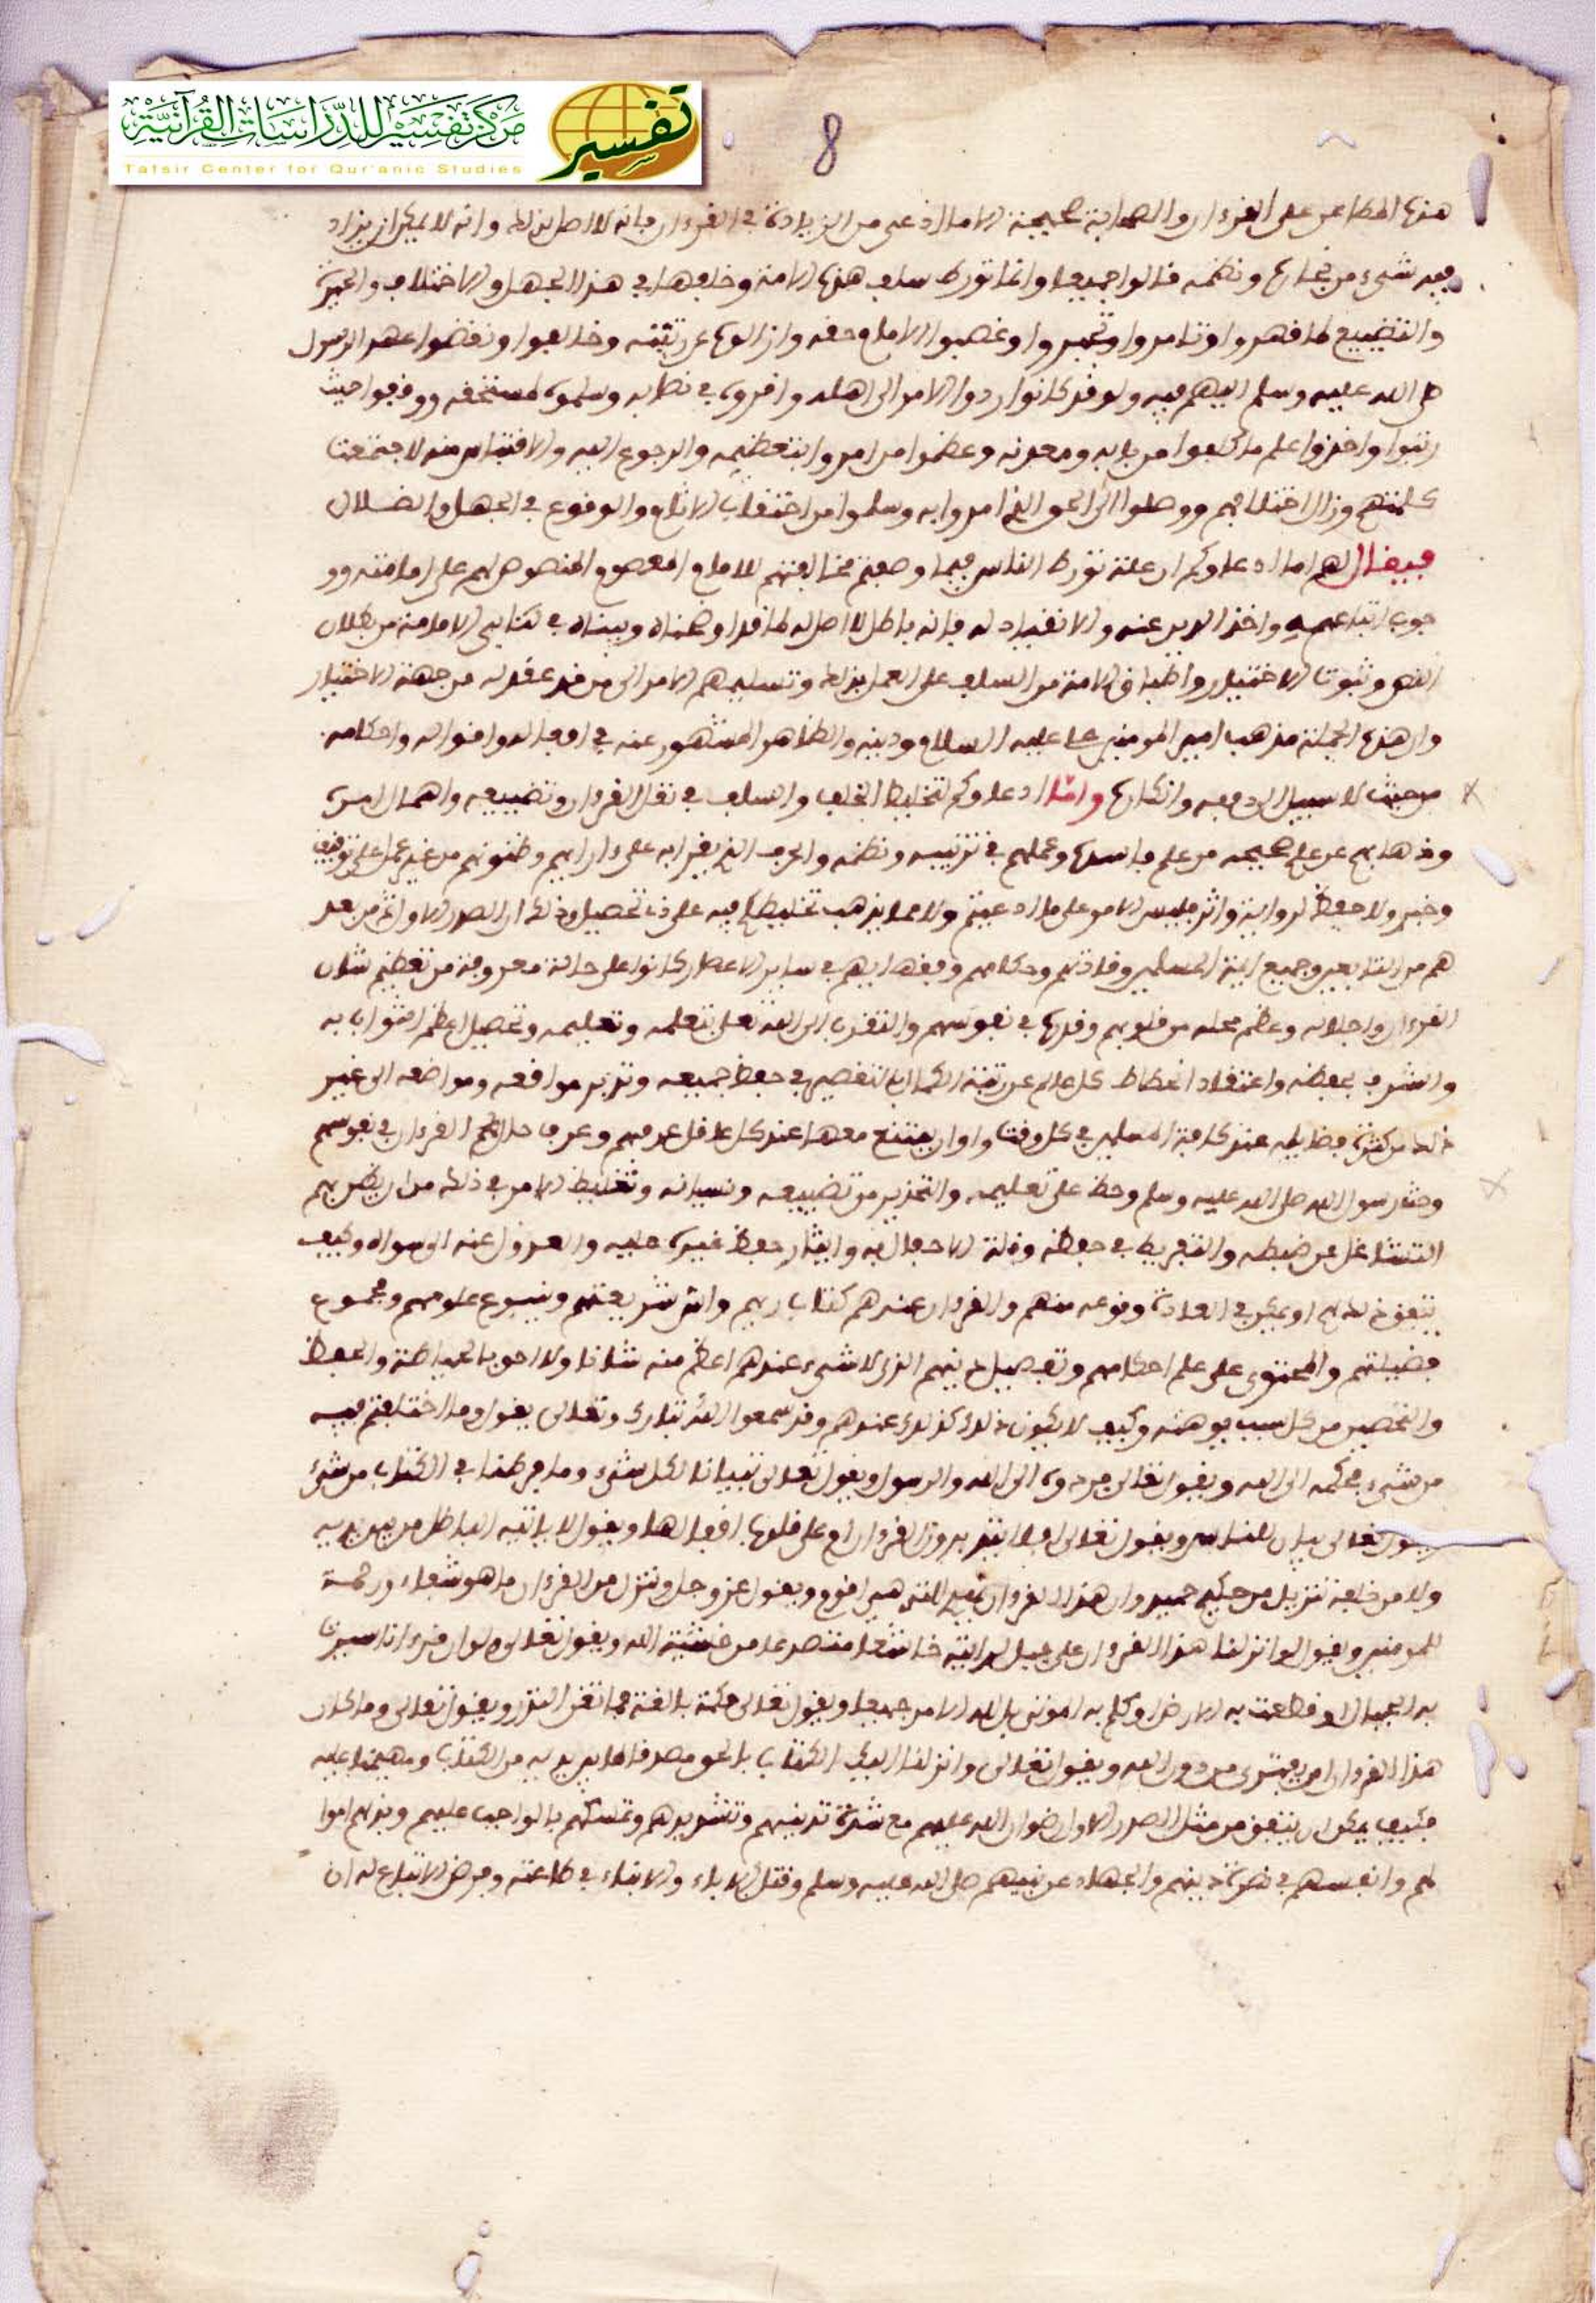 مركز تفسير للدراسات القرآنية
Tafsir Center for Qur'anic Studies
تفسير
8
هذه المطاعن على القرءان والصحابة صحيحة الا ما ادعي من الزيادة في القرءان فانه لا اصل لذلك وانه لا يمكن ان يزاد
فيه شيء من نجاره ونظمه قالوا جميعا وانما تورط سلف هذه الامة وخلفها في هذا الجهل والاختلاف والحيرة
والتضييع لما قهروا وتامروا وتجبروا وغصبوا الامام حقه وازالوه عن رتبته وخالفوا ونقضوا عهد الرسول
صلى الله عليه وسلم اليهم فيه ولو قد كانوا ردوا الامر الى اهله واقروه في نصابه وسلموه لمستحقه ووقفوا حيث
رتبوا واخذوا علم ما كلفوا من بابه ومعدنه وعظموا من امروا بتعظيمه والرجوع اليه والاقتباس منه لاجتمعت
كلمتهم وزال اختلافهم ووصلوا الى الحق الذي امروا به وسلموا من احتقاب الاثام والوقوع في الجهل والضلال
فيقال لهم اما ادعاوكم ان علة تورط الناس فيما وصفتم مخالفتهم للامام المعصوم المنصوص لهم على امامته وو
جوب اتباعهم واخذ الدين عنه والانقياد له فانه باطل لا اصل له لما قد اوضحناه وبيناه في كتابي الامامة من بطلان
النص وثبوت الاختيار واطباق الامة من السلف على العمل بذلك وتسليمهم الامر الى من قد عقد له من جهة الاختيار
وان هذه الجملة مذهب امير المومنين علي عليه السلام ودينه والظاهر المشهور عنه في افعاله واقواله واحكامه
من حيث لا سبيل الى دفعه وانكاره واما ادعاوكم لتخليط الخلف والسلف في نقل القرءان وتضييعه واهمال امره
وذهابهم عن علم صحيحه من علم فاسده وعملهم في ترتيبه ونظمه والحرف الذي يقرا به على ءارايهم وظنونهم من غير عمل على توقيف
وخبر ولا حفظ لرواية واثر فليس الامر على ما ادعيتم ولا مما يذهب تخليطكم فيه على ذي تحصيل وذلك ان الصدر الاول ثم من بعد
هم من التابعين وجميع ايمة المسلمين وقادتهم وحكامهم وفقهايهم في ساير الاعصار كانوا على حالة معروفة من تعظيم شان
القرءان واجلاله وعظم محله من قلوبهم وقدره في نفوسهم والتقرب الى الله تعلى بتعلمه وتعليمه وتحصيل اعظم الثواب به
والشرف بحفظه واعتقاد انحطاط كل عالم عن رتبة الكمال بالتقصير في حفظ جميعه وتدبر مواقعه ومواضعه الى غير
ذلك من كثرة فضايله عند كافة المسلمين في كل وقت واوان يمتنع معها عند كل عاقل عرفهم وعرف حالهم القرءان في نفوسهم
وحث رسول الله صلى الله عليه وسلم وحظ على تعليمه والتحذير من تضييعه ونسيانه وتغليظ الامر في ذلك من ان يظن بهم
التشاغل عن ضبطه والتفريط في حفظه وقلة الاحفال به وايثار حفظ غيره عليه والعدول عنه الى سواه وكيف
يتفق ذلك لهم او يمكن في العادة وقوعه منهم والقرءان عندهم كتاب ربهم واس شريعتهم وينبوع علومهم ومجموع
فضيلتهم والمحتوي على علم احكامهم وتفصيل دينهم الذي لا شيء عندهم اعظم منه شانا ولا احق بالحياطة والحفظ
والتحصين من كل سبب يوهنه وكيف لا يكون ذلك كذلك عندهم وقد سمعوا الله تبارك وتعالى يقول وما اختلفتم فيه
من شيء فحكمه الى الله ويقول تعالى فردوه الى الله والرسول ويقول تعالى تبيانا لكل شيء وما فرطنا في الكتاب من شيء
ويقول تعالى بيان للناس ويقول تعالى افلا يتدبرون القرءان ام على قلوب اقفالها ويقول لا ياتيه الباطل من بين يديه
ولا من خلفه تنزيل من حكيم حميد وان هذا القرءان يهدي للتي هي اقوم ويقول عز وجل وننزل من القرءان ما هو شفاء ورحمة
للمومنين ويقول لو انزلنا هذا القرءان على جبل لرايته خاشعا متصدعا من خشية الله ويقول تعالى ولو ان قرءانا سيرت
به الجبال او قطعت به الارض او كلم به الموتى بل لله الامر جميعا ويقول تعالى حكمة بالغة فما تغن النذر ويقول تعالى وما كان
هذا القرءان ان يفترى من دون الله ويقول تعالى وانزلنا اليك الكتاب بالحق مصدقا لما بين يديه من الكتاب ومهيمنا عليه
فكيف يمكن ان يتفق من مثل الصدر الاول رضوان الله عليهم مع شدة تدينهم وتشددهم وتمسكهم بالواجب عليهم وبذلهم اموا
لهم وانفسهم في نصرة دينهم والجهاد عن نبيهم صلى الله عليه وسلم وقتل الاباء والابناء في طاعته وفرض الاتباع له ان